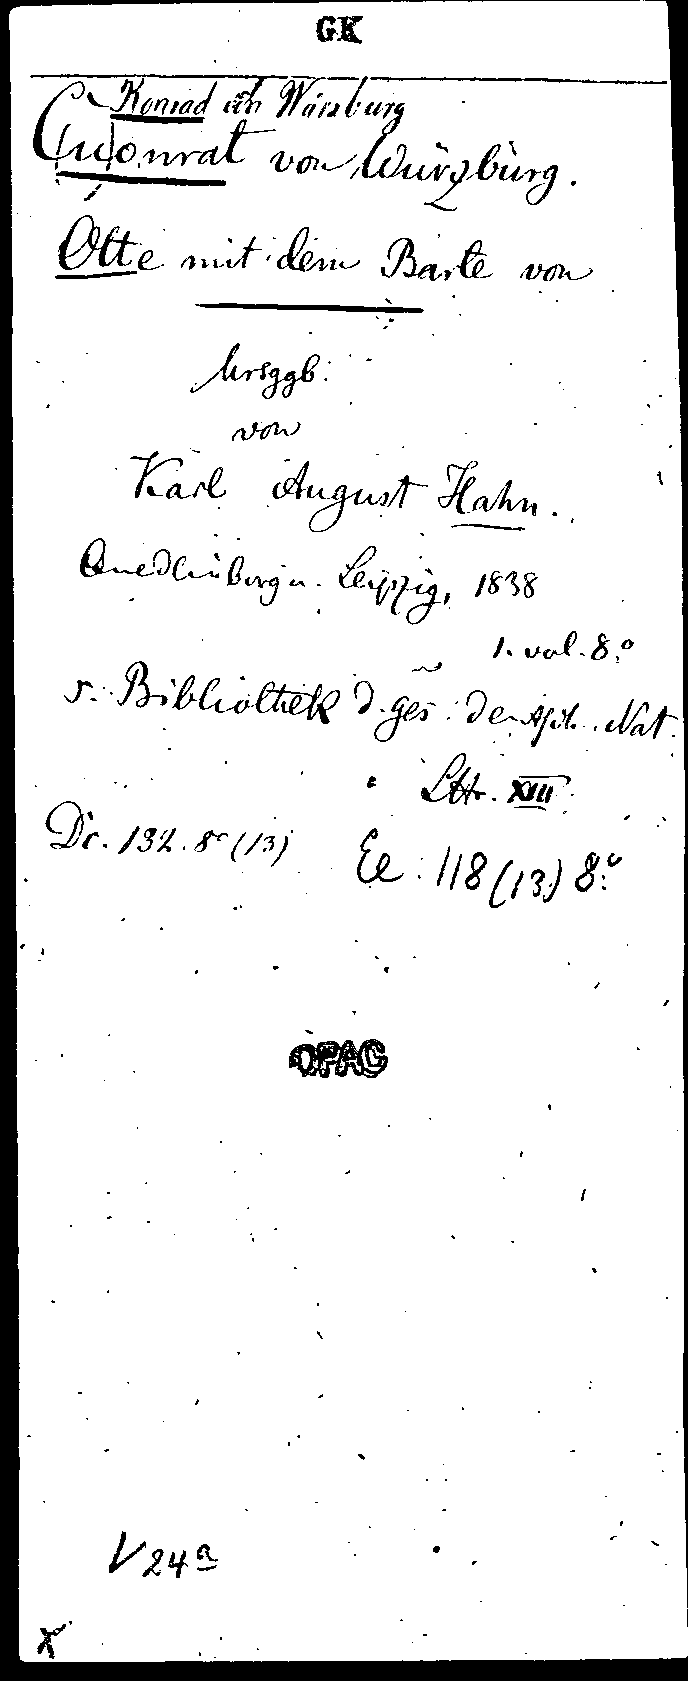 GK
Konrad von Würzburg
Cuonrat von Würzburg.
Otte mit dem Barte von
hrsggb.
von
Karl August Hahn.
Quedlinburg u. Leipzig, 1838
1. vol. 8.°
s. Bibliothek d. ges. deutsch. Nat.
Litt. XIII
Dc. 132. 8° (13)
Ee. 118 (13) 8.°
OPAC
V 24 a
X